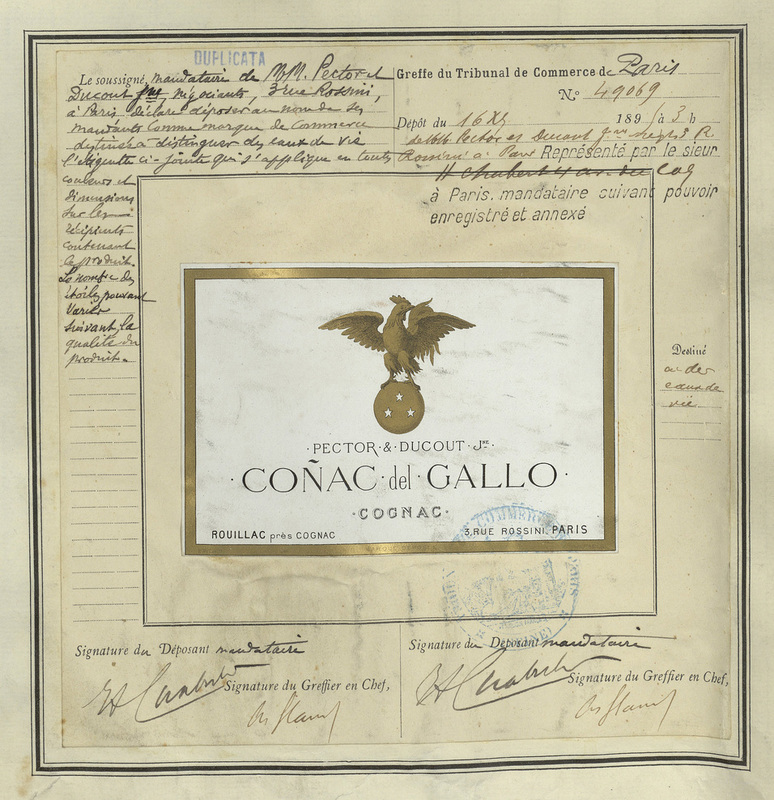 DUPLICATA
Le soussigné, mandataire de MM. Pector et
Ducout Jne négociants, 3 rue Rossini,
à Paris déclare déposer au nom de ses
mandants comme marque de Commerce
destinée à distinguer des eaux de vie
l'étiquette ci-jointe qui s'applique en toutes
couleurs et
dimensions
sur les
récipients
contenant
le produit.
Le nombre des
étoiles pouvant
varier
suivant la
qualité du
produit.
Greffe du Tribunal de Commerce de Paris
N° 49069
Dépôt du 16 189 à 3 h
de MM Pector et Ducout Jne 3 R.
Rossini à Paris Représenté par le sieur
à Paris. mandataire suivant pouvoir
enregistré et annexé
PECTOR & DUCOUT JNE
COÑAC del GALLO
COGNAC
ROUILLAC près COGNAC
3, RUE ROSSINI, PARIS
Destiné
à des
eaux de
vie
Signature du Déposant mandataire
Signature du Greffier en Chef,
Signature du Déposant mandataire
Signature du Greffier en Chef,